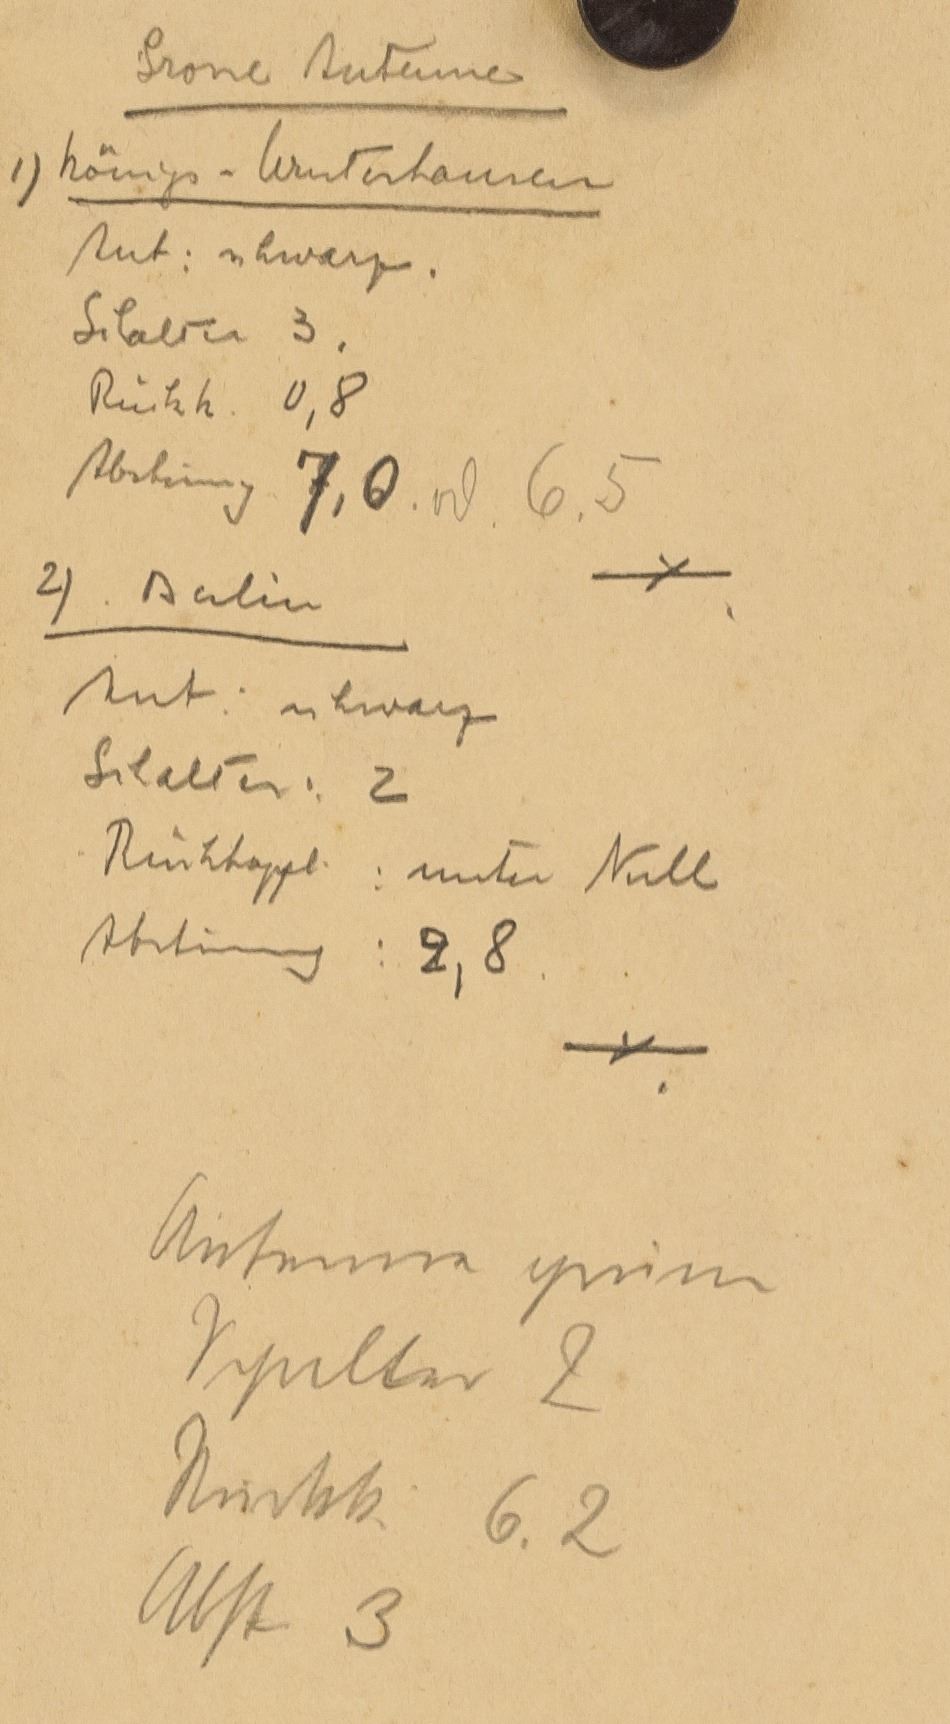 Grosse Antenne
1) Königs-Wusterhausen
Ant: schwarz.
Schalter 3.
Rückk. 0,8
Abstimmg 7,0. od. 6.5
2) Berlin
Ant: schwarz
Schalter: 2
Rückkoppl: unter Null
Abstimmung: 2,8
Antenne grün
Schalter 2
Rückk. 6.2
Abst 3